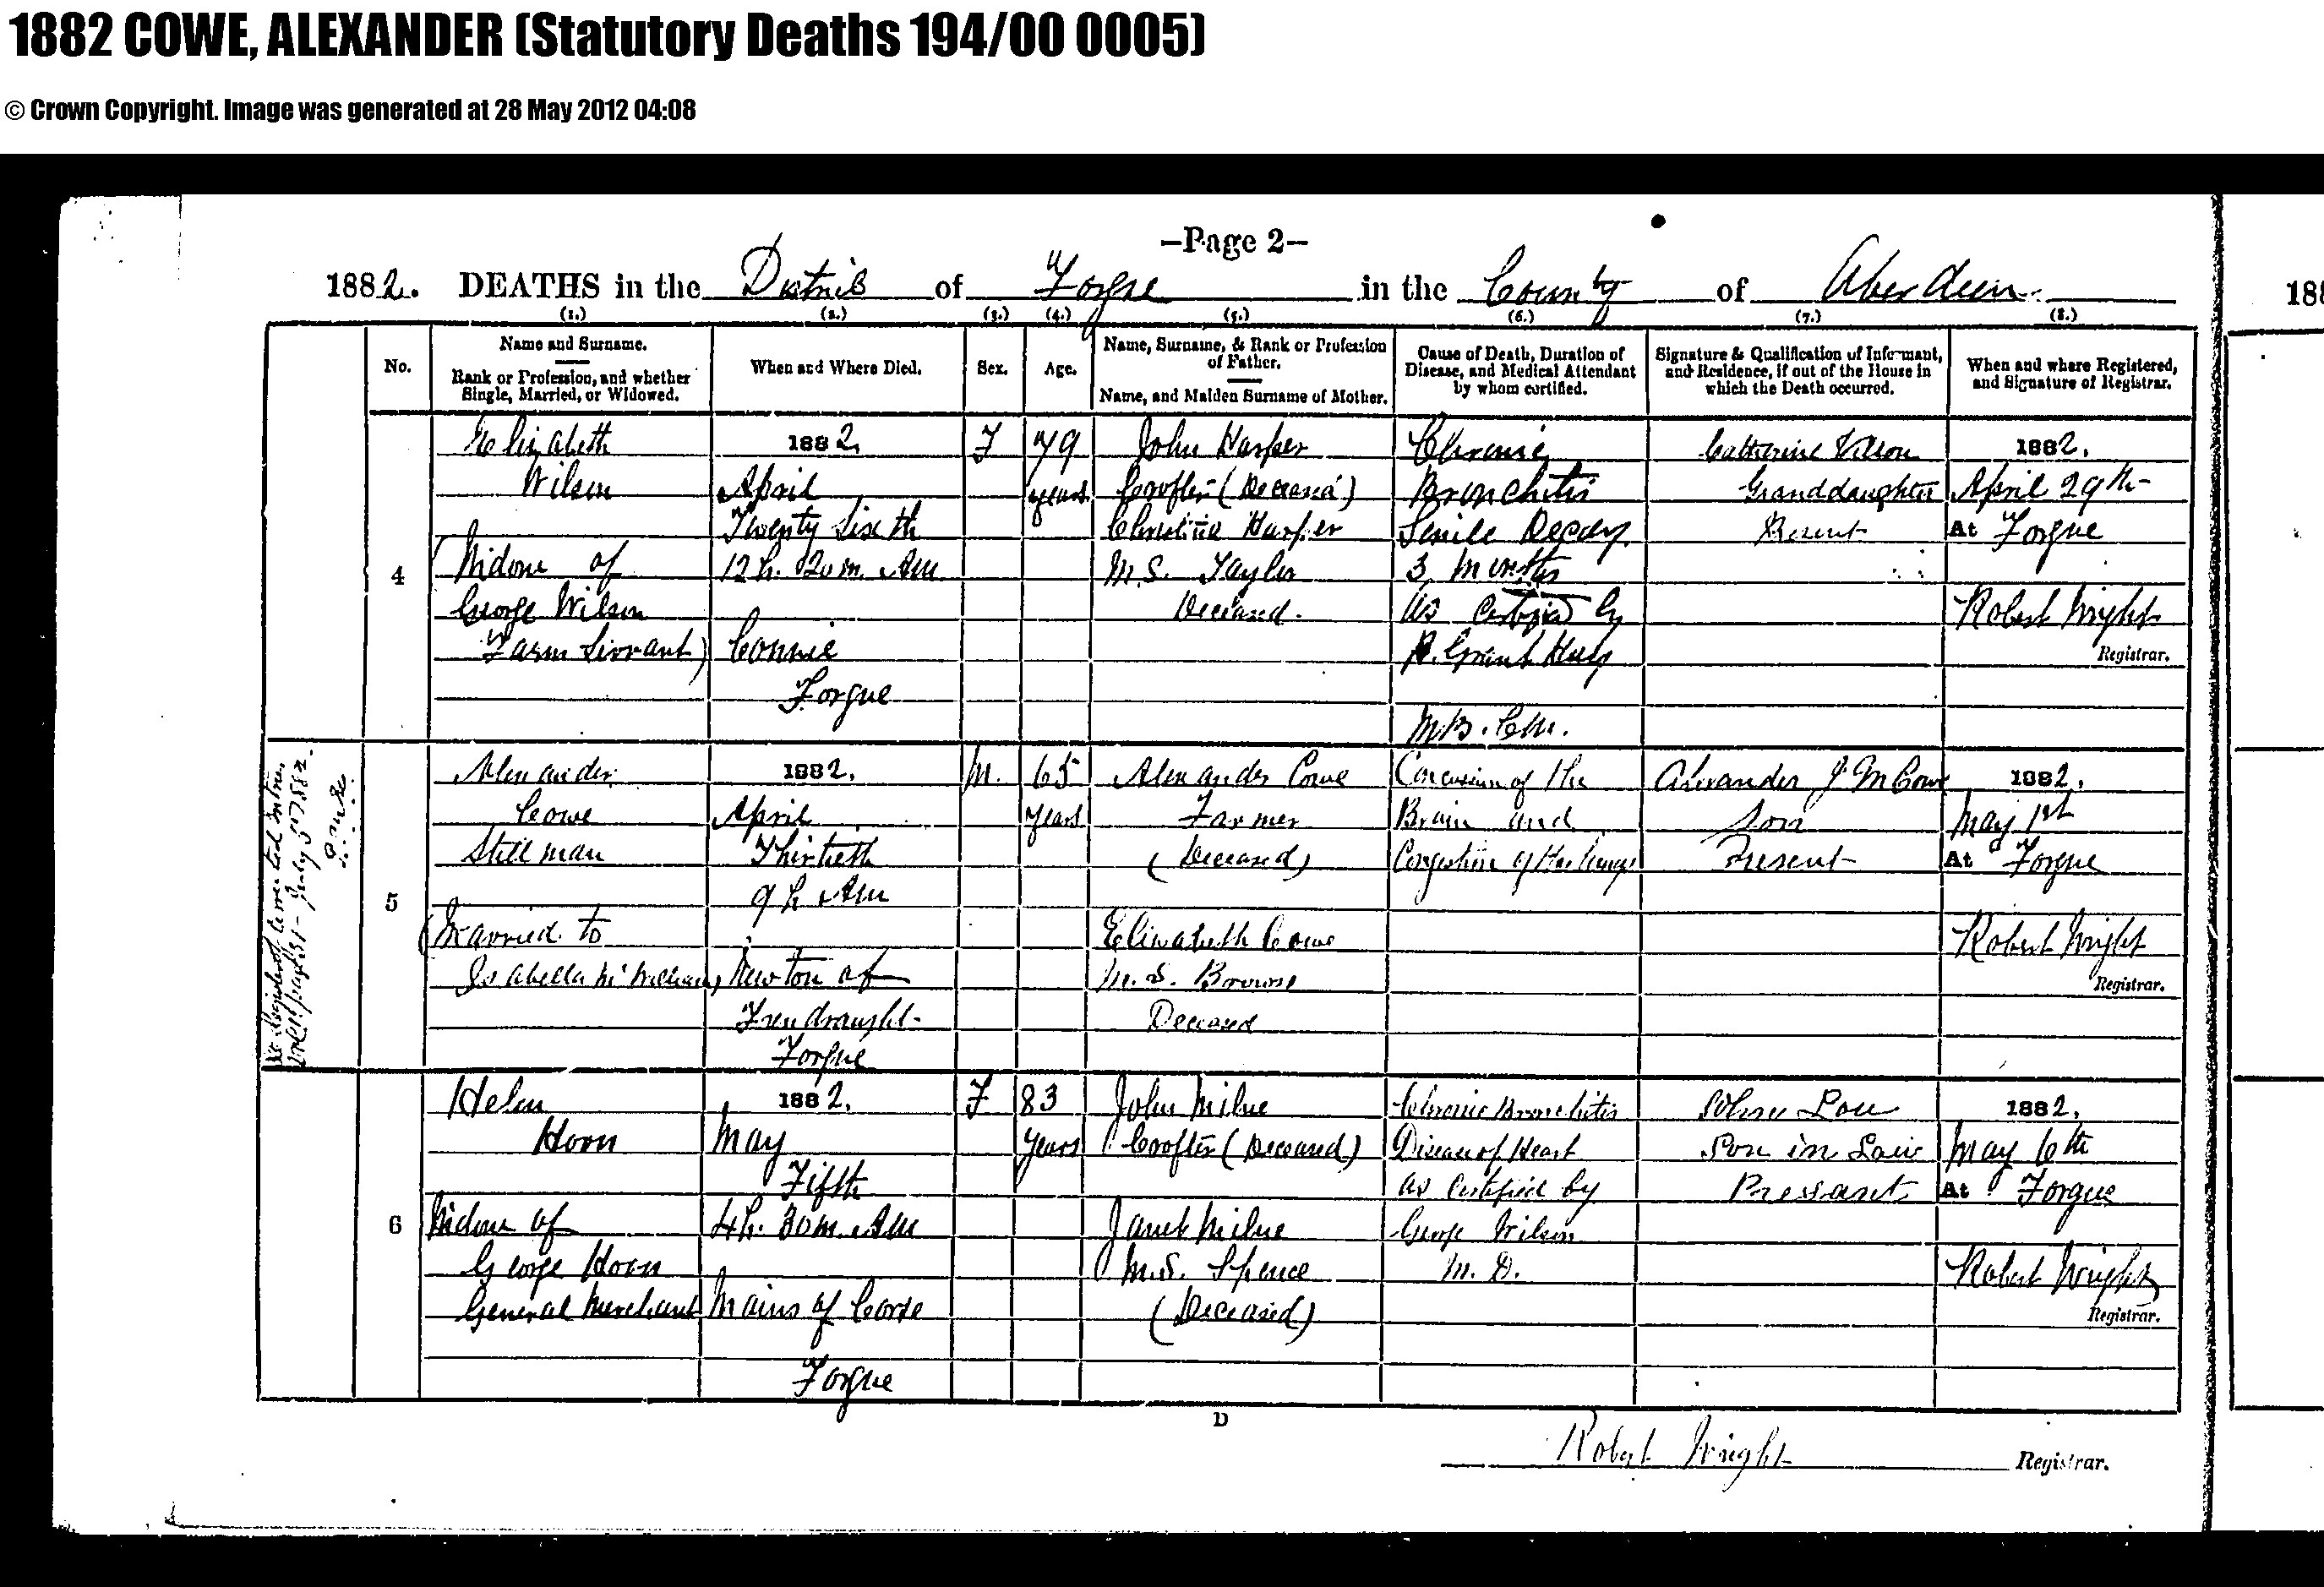 1882 COWE, ALEXANDER (Statutory Deaths 194/00 0005)
© Crown Copyright. Image was generated at 28 May 2012 04:08
–Page 2–
1882. DEATHS in the District of Forgue in the County of Aberdeen
188
(1.) (2.) (3.) (4.) (5.) (6.) (7.) (8.)
No.
Name and Surname.
Rank or Profession, and whether
Single, Married, or Widowed.
When and Where Died.
Sex.
Age.
Name, Surname, & Rank or Profession
of Father.
Name, and Maiden Surname of Mother.
Cause of Death, Duration of
Disease, and Medical Attendant
by whom certified.
Signature & Qualification of Informant,
and Residence, if out of the House in
which the Death occurred.
When and where Registered,
and Signature of Registrar.
4
Elizabeth
Wilson
(Widow of
George Wilson
Farm Servant)
1882.
April
Twenty Sixth
12 h. 20 m. AM
Connie
Forgue
F
79
years
John Harper
Crofter (Deceased)
Christina Harper
M.S. Taylor
Deceased.
Chronic
Bronchitis
Senile Decay
3 months
As Certified by
Grant
M.B. C.M.
Catherine Wilson
Granddaughter
Present
1882.
April 29th
At Forgue
Robert Wright
Registrar.
5
Alexander
Cowe
Stillman
(Married to
Isabella McWilliam)
1882.
April
Thirtieth
9 h AM
Newton of
Frendraught
Forgue
M.
65
years
Alexander Cowe
Farmer
(Deceased)
Elizabeth Cowe
M.S. Browne
Deceased
Concussion of the
Brain and
Congestion of the Lungs
Alexander J M Cowe
Son
Present
1882.
May 1st
At Forgue
Robert Wright
Registrar.
See Register of Corrected Entries
Vol page July 5th 1882.
6
Helen
Horn
Widow of
George Horn
General Merchant
1882.
May
Fifth
4 h. 30 m. AM
Mains of Corse
Forgue
F
83
years
John Milne
Crofter (Deceased)
Janet Milne
M.S. Spence
(Deceased)
Chronic Bronchitis
Disease of Heart
as Certified by
George Wilson
M.D.
Son in Law
Pressant
1882.
May 6th
At Forgue
Robert Wright
Registrar.
D
Robert Wright Registrar.